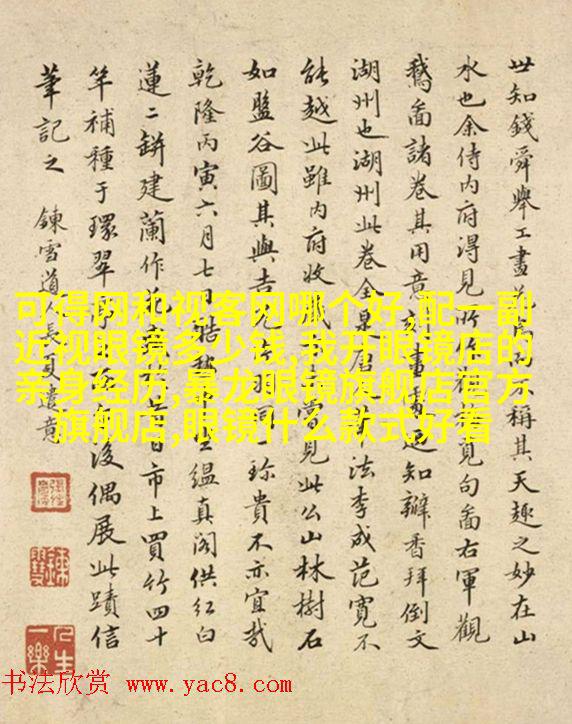 世知錢舜舉工畫不稱其天趣之妙在山
水也余侍内府得見所見句啚右軍觀
鵝啚諸卷其用意刻畫知辦香拜倒文
湖州也湖州此卷全是唐法李成范寬不
能越此雖内府收見此公山林樹石
如盤谷圖其與珍貴不亦宜哉
乾隆丙寅六月七縕真閣供紅白
蓮二缾建蘭作日市上買竹四十
竿補種于環翠後偶展此蹟信
筆記之 鍊雪道人長夏遣意
可得网和视客网哪个好,配一副
近视眼镜多少钱,我开眼镜店的
亲身经历,暴龙眼镜旗舰店官方
旗舰店,眼镜什么款式好看
人生一樂
书法欣赏 www.yac8.com